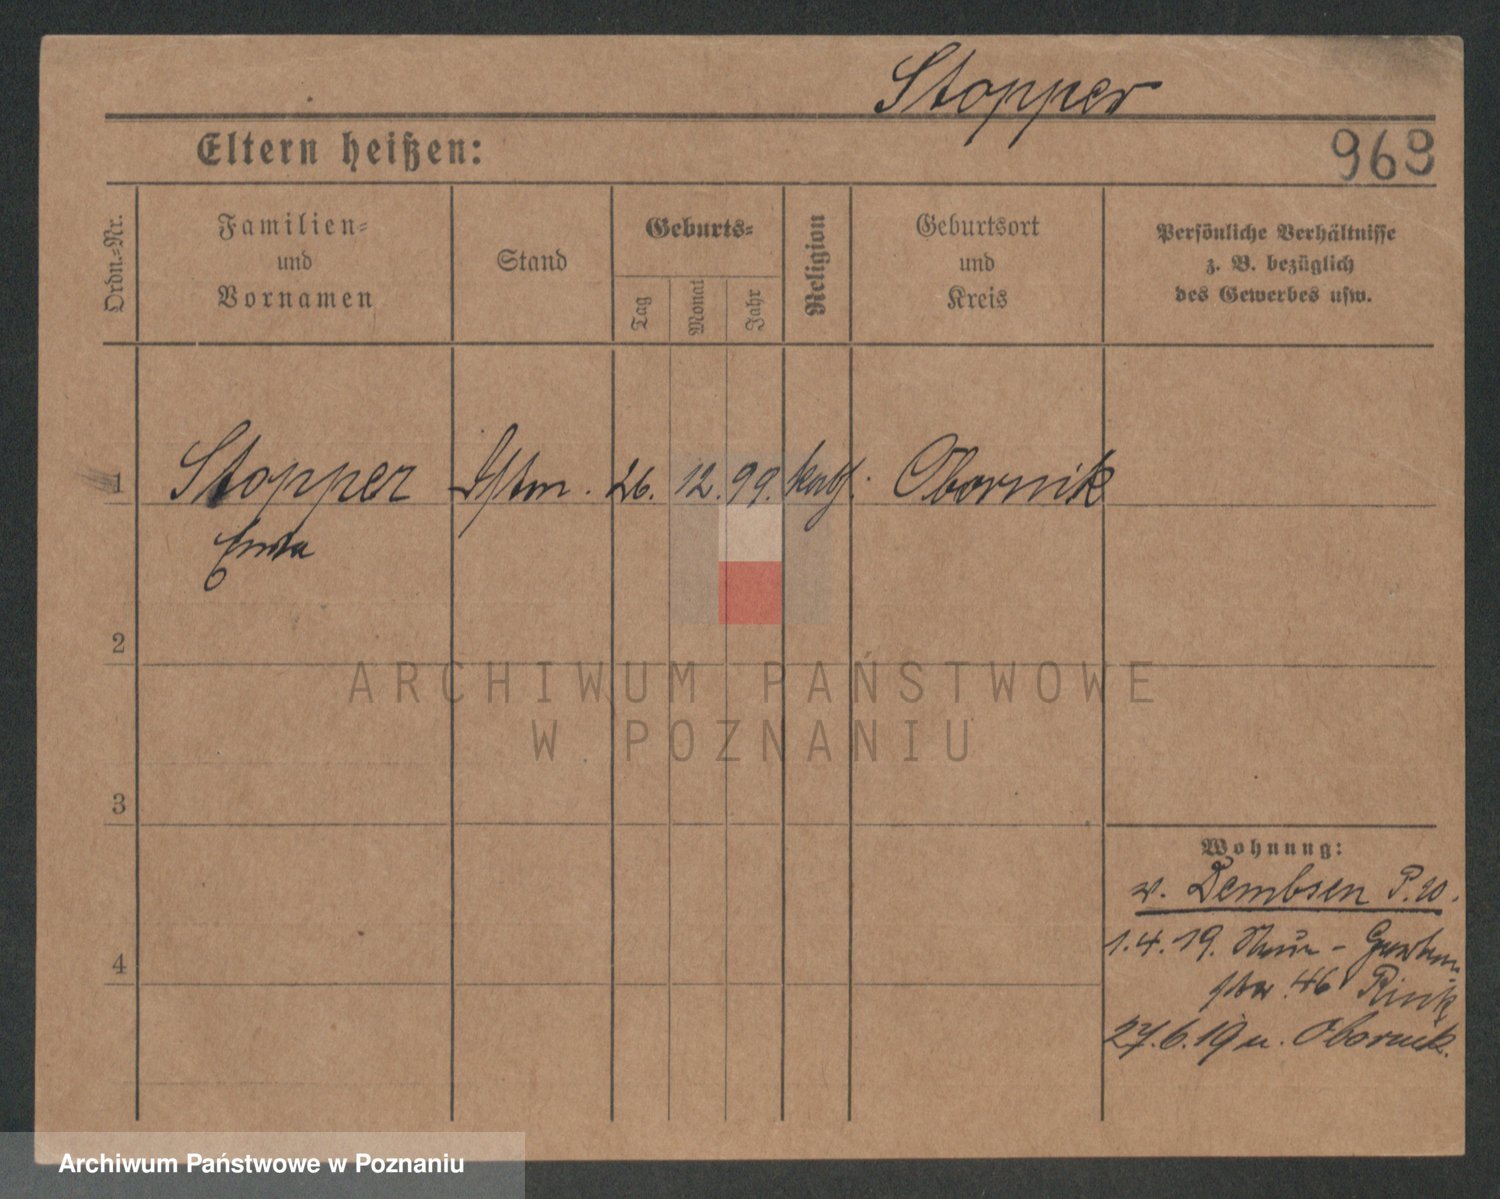 Stopper
Eltern heißen:
963
Ordn.-Nr.
Familien-
und
Vornamen
Stand
Geburts-
Tag
Monat
Jahr
Religion
Geburtsort
und
Kreis
Persönliche Verhältnisse
z. B. bezüglich
des Gewerbes usw.
1 Stopper 26. 12. 99. kath. Obornik
2
ARCHIWUM PAŃSTWOWE
W POZNANIU
3
Wohnung:
v. Dembsen P. 20.
1.4.19.
46 Rink
4
27.6.19 n. Obornik.
Archiwum Państwowe w Poznaniu